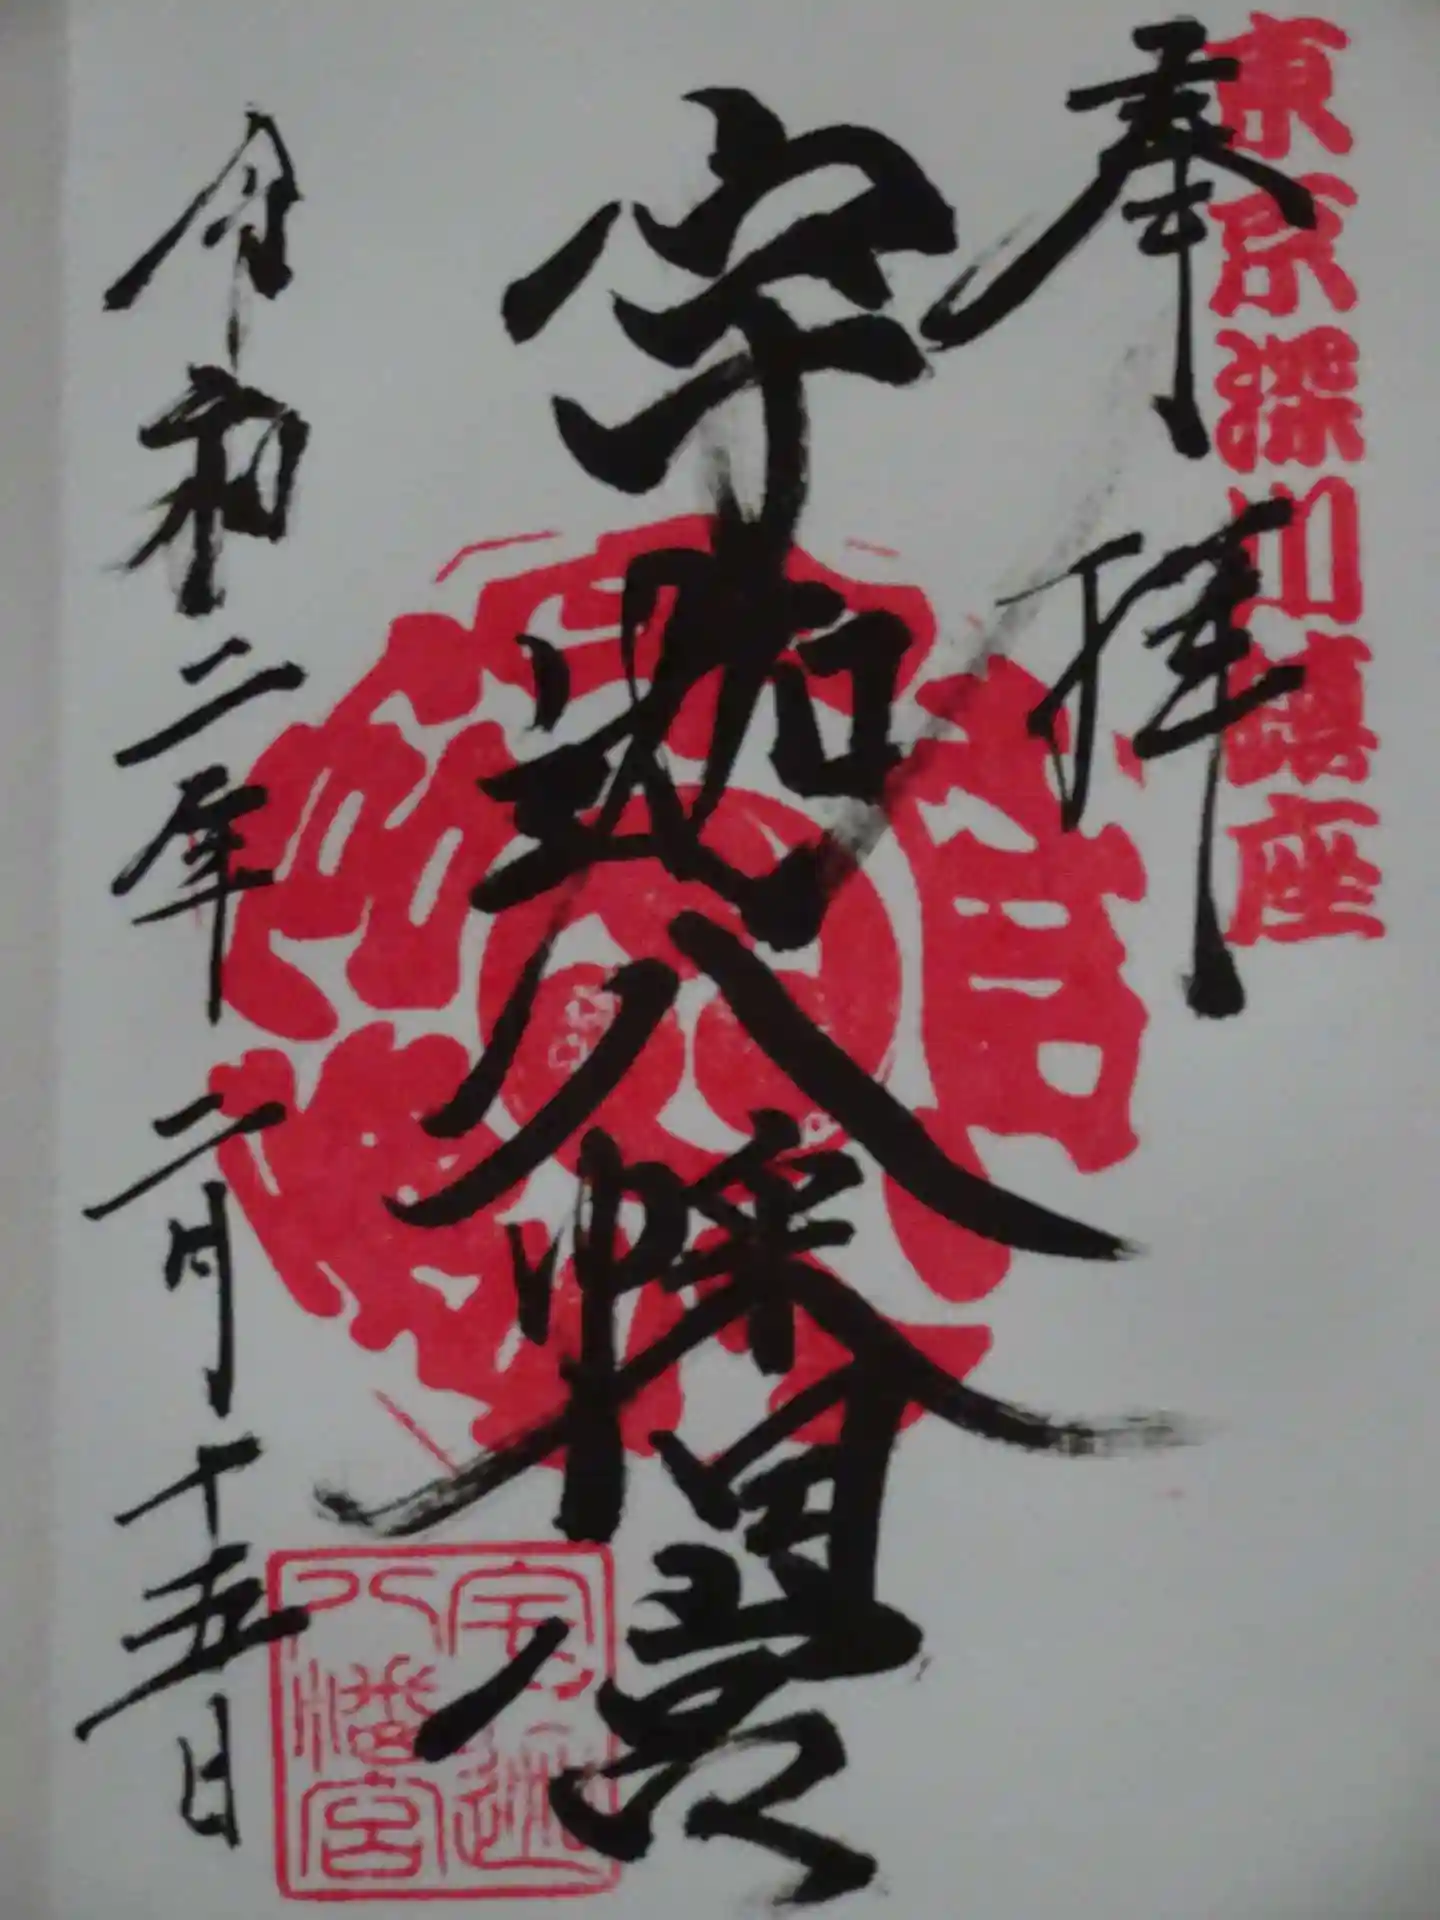 東京深川鎮座
奉拝
宇迦八幡宮
令和二年二月十五日
宇迦八幡宮